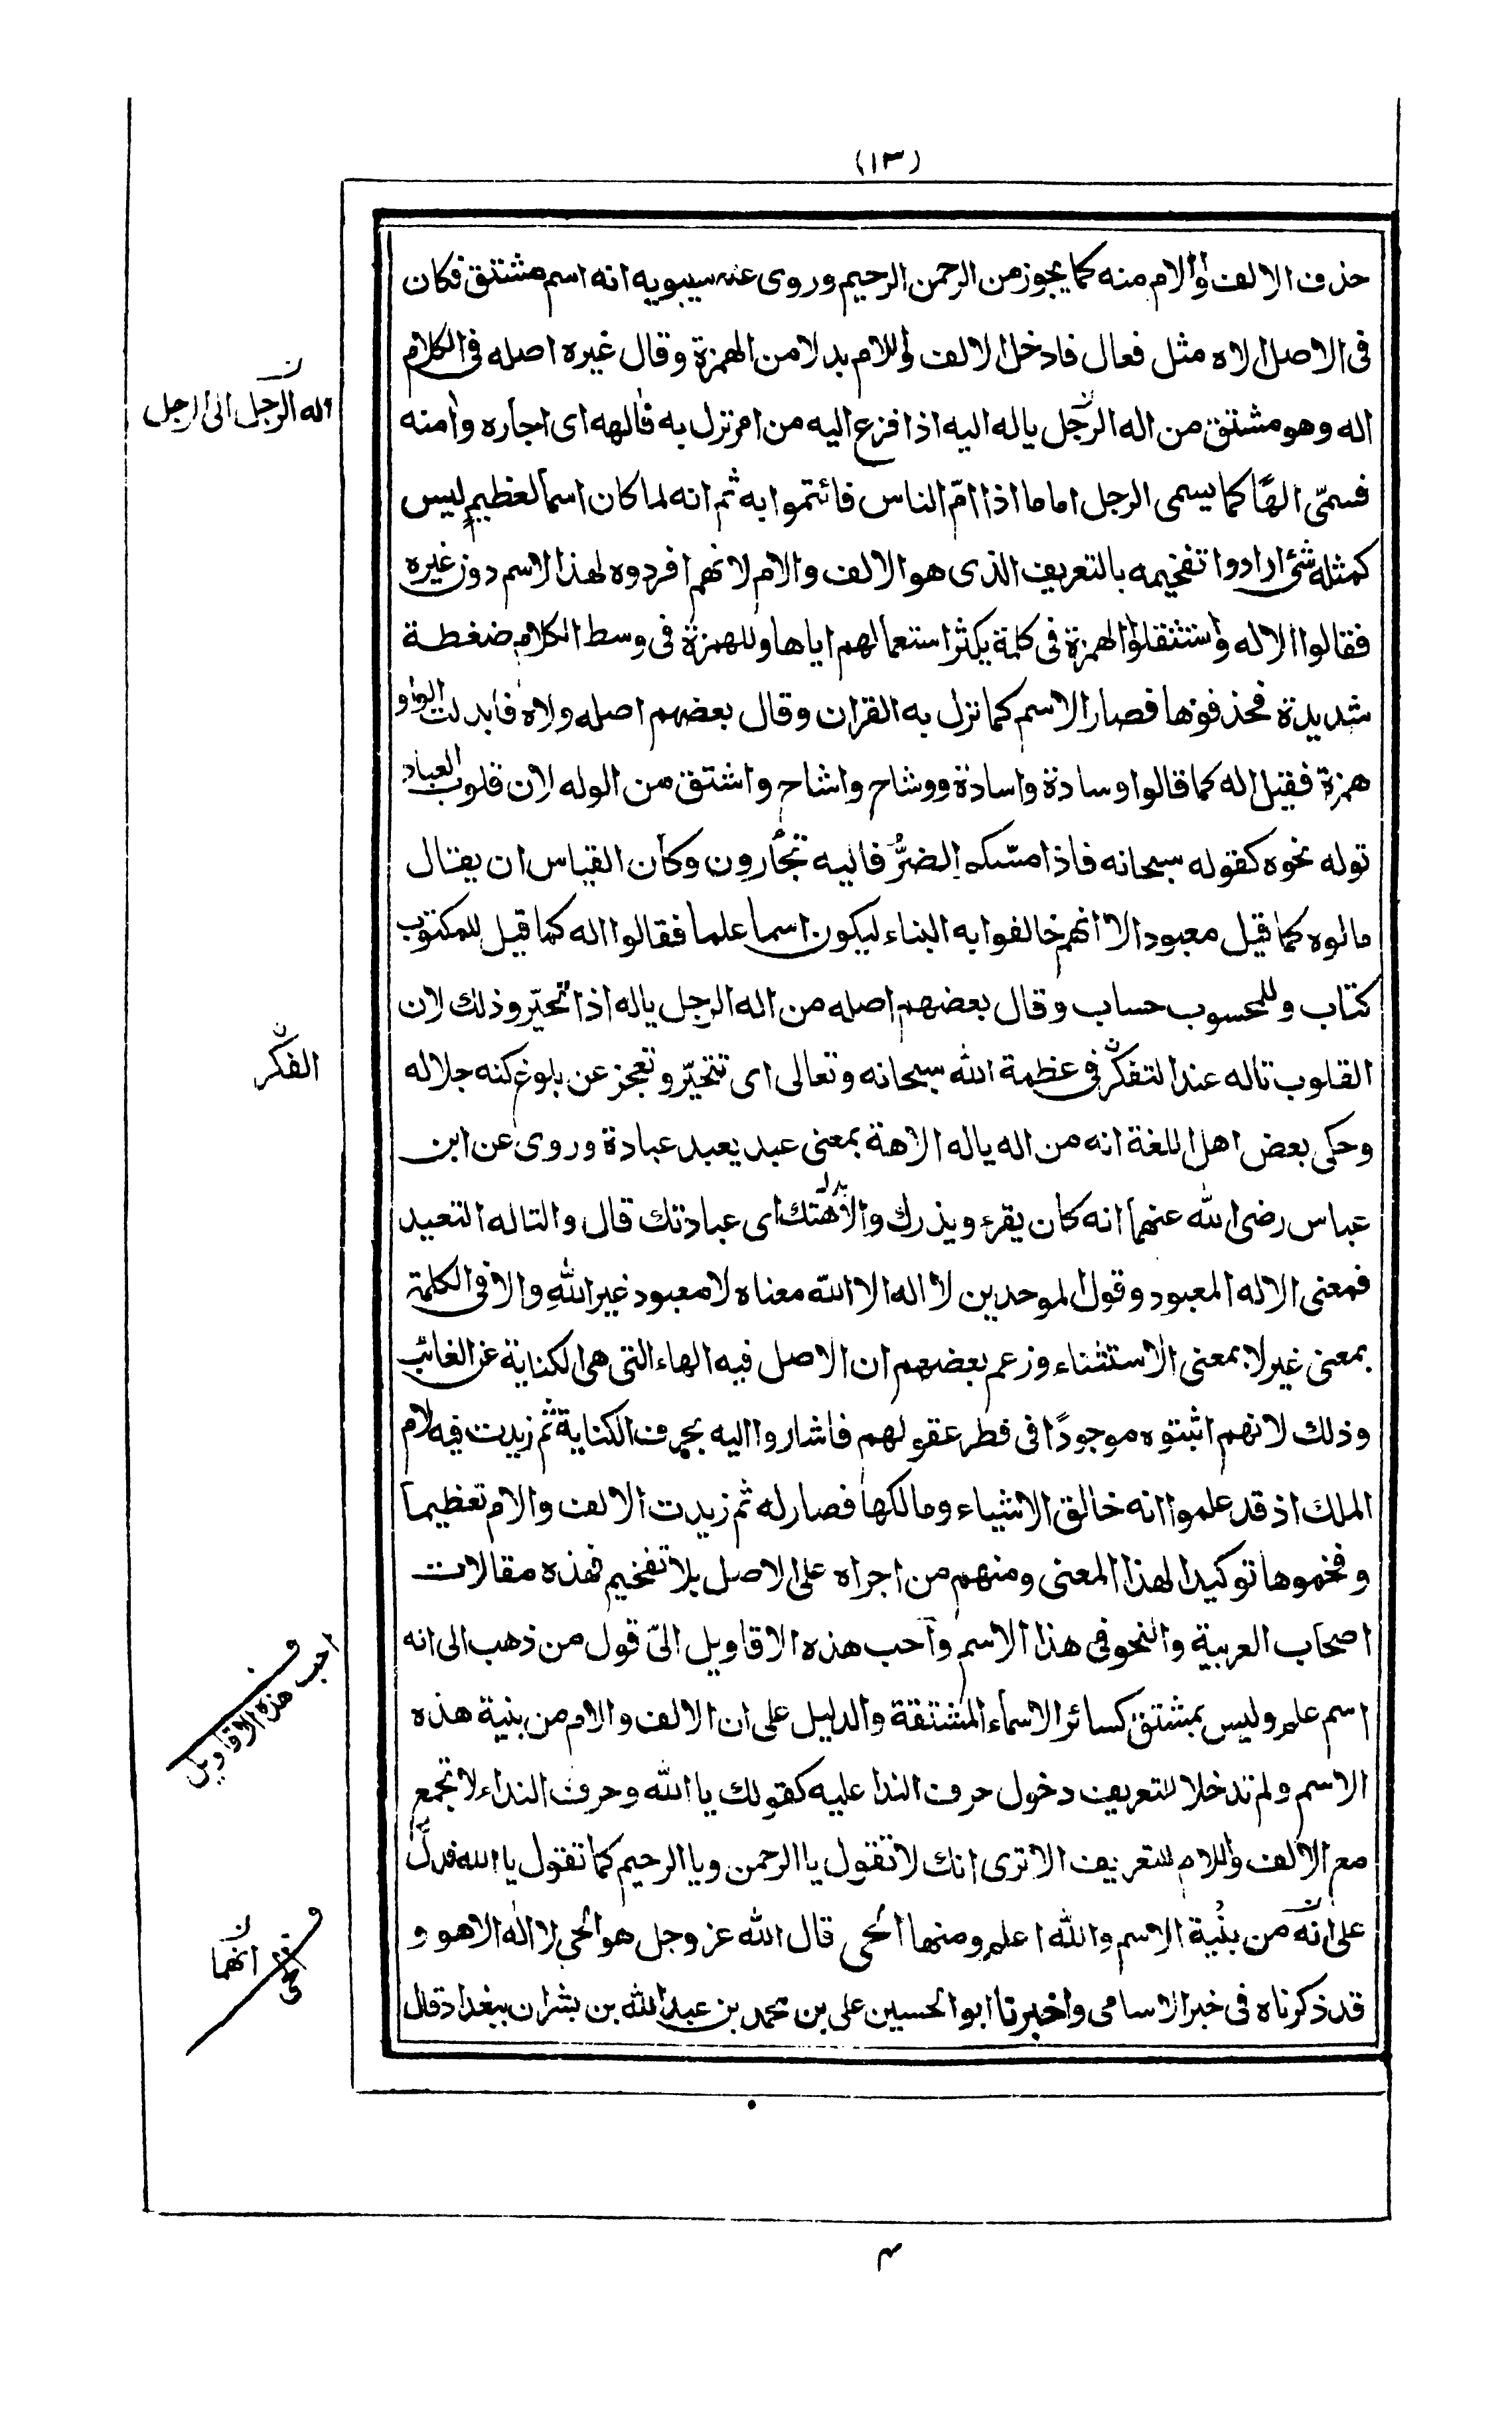 (١٣)
حذف الالف والام منه كما يجوز من الرحمن الرحيم وروى عنه سيبويه انه اسم مشتق فكان
فى الاصل الاه مثل فعال فادخل الالف واللام بدلا من الهمزة وقال غيره اصله فى الكلام
اله وهو مشتق من اله الرجل ياله اليه اذا فزع اليه من امر نزل به فالهه اى اجاره وامنه
اله الرجل الى الرجل
فسمّى الهًا كما يسمى الرجل اماما اذا امّ الناس فائتموا به ثم انه لما كان اسما لعظيم ليس
كمثله شئ ارادوا تفخيمه بالتعريف الذى هو الالف والام لانهم افردوه لهذا الاسم دون غيره
فقالوا الاله واستثقلوا الهمزة فى كلمة يكثر استعمالهم اياها وللهمزة فى وسط الكلام ضغطة
شديدة فحذفوها فصار الاسم كما نزل به القران وقال بعضهم اصله ولاه فابدلت الواو
همزة فقيل اله كما قالوا وسادة واسادة ووشاح واشاح واشتق من الوله لان قلوب العباد
توله نحوه كقوله سبحانه فاذا مسّكم الضرُّ فاليه تجأرون وكان القياس ان يقال
مالوه كما قيل معبود الا انهم خالفوا به البناء ليكون اسما علما فقالوا اله كما قيل للمكتوب
كتاب وللمحسوب حساب وقال بعضهم اصله من اله الرجل ياله اذا تحيّر وذلك لان
القلوب تاله عند التفكّر فى عظمة الله سبحانه وتعالى اى تتحيّر وتعجز عن بلوغ كنه جلاله
الفكر
وحكى بعض اهل اللغة انه من اله ياله الاهة بمعنى عبد يعبد عبادة وروى عن ابن
عباس رضى الله عنهما انه كان يقرء ويذرك والاهتك اى عبادتك قال والتاله التعبد
فمعنى الاله المعبود وقول الموحدين لا اله الا الله معناه لا معبود غير الله والا فى الكلمة
بمعنى غير لا بمعنى الاستثناء وزعم بعضهم ان الاصل فيه الهاء التى هى الكناية عن الغائب
وذلك لانهم اثبتوه موجودًا فى فطر عقولهم فاشاروا اليه بحرف الكناية ثم زيدت فيه لام
الملك اذ قد علموا انه خالق الاشياء ومالكها فصار له ثم زيدت الالف والام تعظيما
وفخموها توكيدا لهذا المعنى ومنهم من اجراه على الاصل بلا تفخيم فهذه مقالات
اصحاب العربية والنحو فى هذا الاسم واحب هذه الاقاويل الىّ قول من ذهب الى انه
احب هذه الاقاويل
اسم علم وليس بمشتق كسائر الاسماء المشتقة والدليل على ان الالف والام من بنية هذه
الاسم ولم تدخلا للتعريف دخول حرف الندا عليه كقولك يا الله وحرف النداء لا تجمع
مع الالف واللام للتعريف الا ترى انك لا تقول يا الرحمن ويا الرحيم كما تقول يا الله فدلّ
على انه من بنية الاسم والله اعلم ومنها الحى قال الله عز وجل هو الحى لا اله الا هو و
انهما
قد ذكرناه فى خبر الاسامى واخبرنا ابو الحسين على بن محمد بن عبد الله بن بشران ببغداد قال